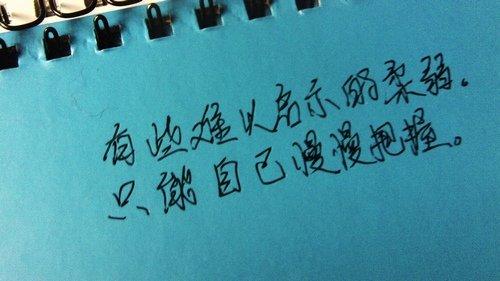 有些难以启示的柔弱.
只能自己慢慢把握。